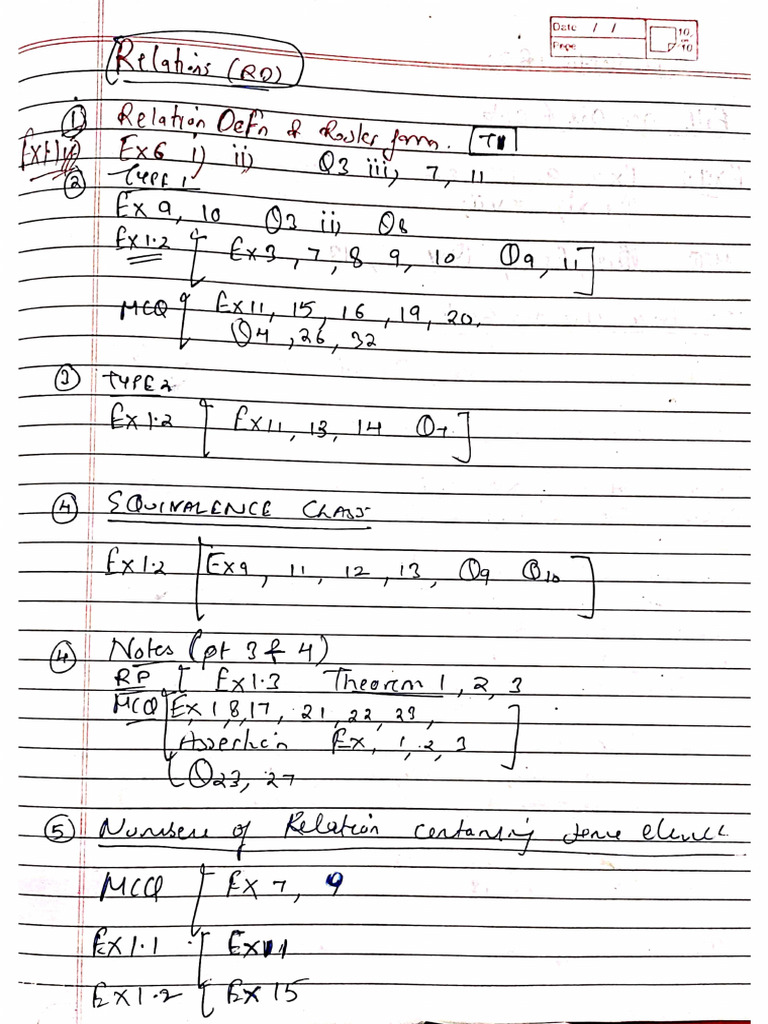 Date / /
Page
Relations (RD)
① Relation Defn & Roster form. T1
Ex 6 i) ii) Q3 iii, 7, 11
② TYPE 1
Ex 9, 10 Q3 ii, Q8
Ex 1.2 [ Ex 3, 7, 8 9, 10 Q9, 11 ]
MCQ { Ex 11, 15, 16, 19, 20.
Q4, 26, 32
③ TYPE 2
Ex 1.2 [ Ex 11, 13, 14 Q7 ]
④ EQUIVALENCE CLASS
Ex 1.2 [ Ex 9, 11, 12, 13, Q9 Q10 ]
④ Notes (pt 3 & 4)
RP [ Ex 1.3 Theorem 1, 2, 3
MCQ [ Ex, 1 8, 17, 21, 22, 23,
Assertion Ex, 1, 2, 3 ]
Q23, 27
⑤ Numbers of Relation containing some element
MCQ { Ex 7, 9
Ex 1.1 { Ex 11
Ex 1.2 { Ex 15